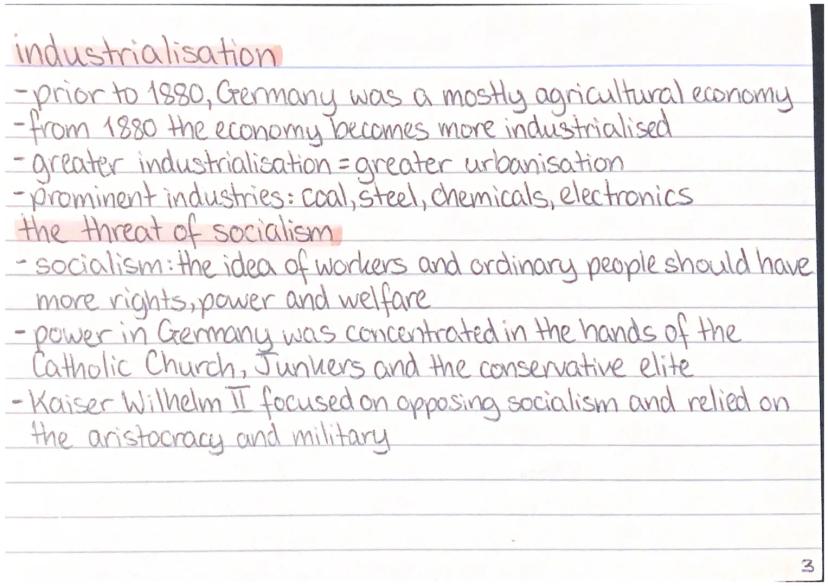 industrialisation
-prior to 1880, Germany was a mostly agricultural economy
-from 1880 the economy becomes more industrialised
-greater industrialisation = greater urbanisation
-prominent industries: coal, steel, chemicals, electronics
the threat of socialism
- socialism: the idea of workers and ordinary people should have
more rights, power and welfare
-power in Germany was concentrated in the hands of the
Catholic Church, Junkers and the conservative elite
-Kaiser Wilhelm II focused on opposing socialism and relied on
the aristocracy and military
3